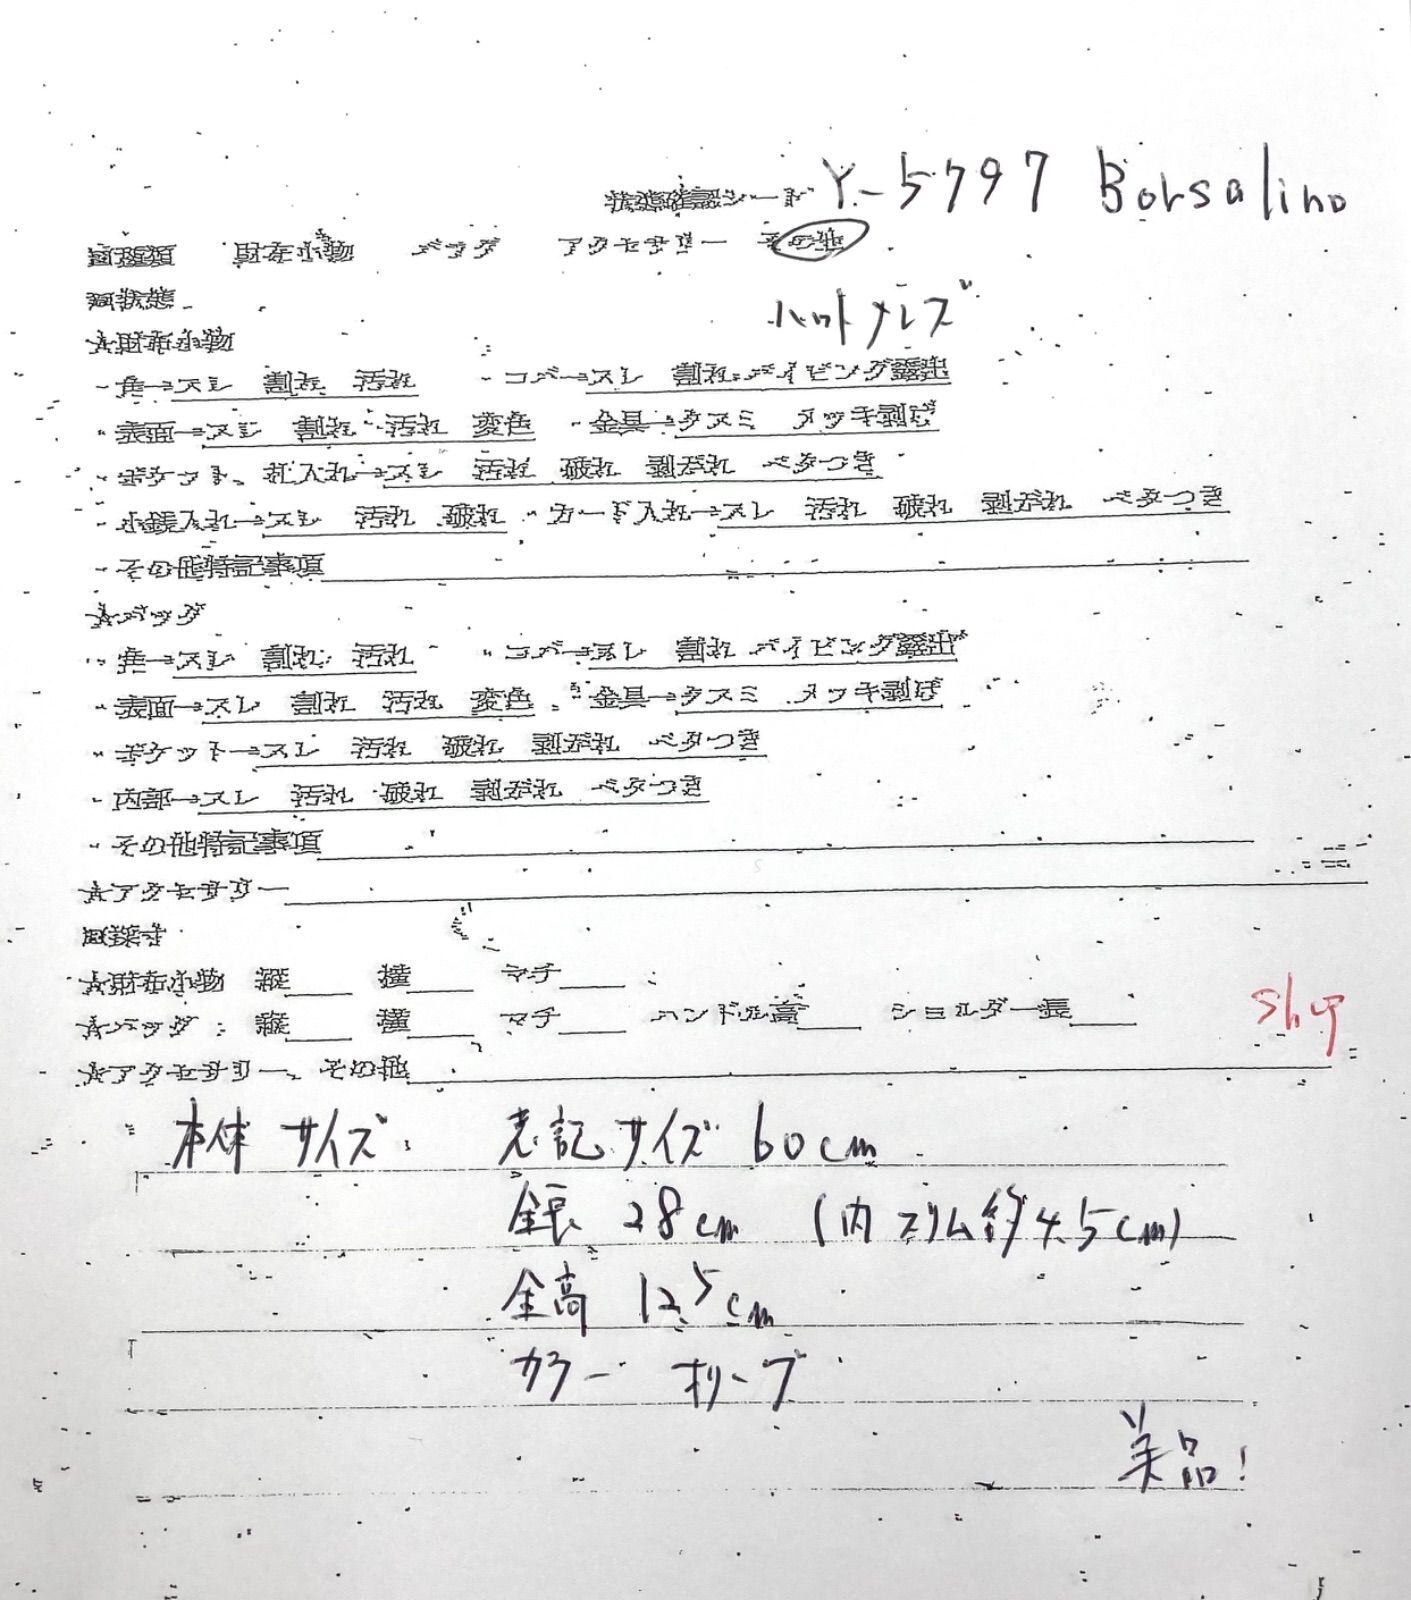 状態確認シート Y-5797 Borsalino
種類 財布小物 バッグ アクセサリー その他
状態
ハット メンズ
☆財布小物
・角→スレ 割れ 汚れ ・コバ→スレ 割れ パイピング露出
・表面→スレ 割れ 汚れ 変色 ・金具→クスミ メッキ剥げ
・ポケット、札入れ→スレ 汚れ 破れ 剥がれ ベタつき
・小銭入れ→スレ 汚れ 破れ ・カード入れ→スレ 汚れ 破れ 剥がれ ベタつき
・その他特記事項
☆バッグ
・角→スレ 割れ 汚れ ・コバ→スレ 割れ パイピング露出
・表面→スレ 割れ 汚れ 変色 ・金具→クスミ メッキ剥げ
・ポケット→スレ 汚れ 破れ 剥がれ ベタつき
・内部→スレ 汚れ 破れ 剥がれ ベタつき
・その他特記事項
☆アクセサリー
採寸
☆財布小物 縦 横 マチ
☆バッグ 縦 横 マチ ハンドル高 ショルダー長
☆アクセサリー、その他
本体サイズ 表記サイズ 60cm
全長 28cm (内 ブリム約4.5cm)
全高 12.5cm
カラー オリーブ
美品!